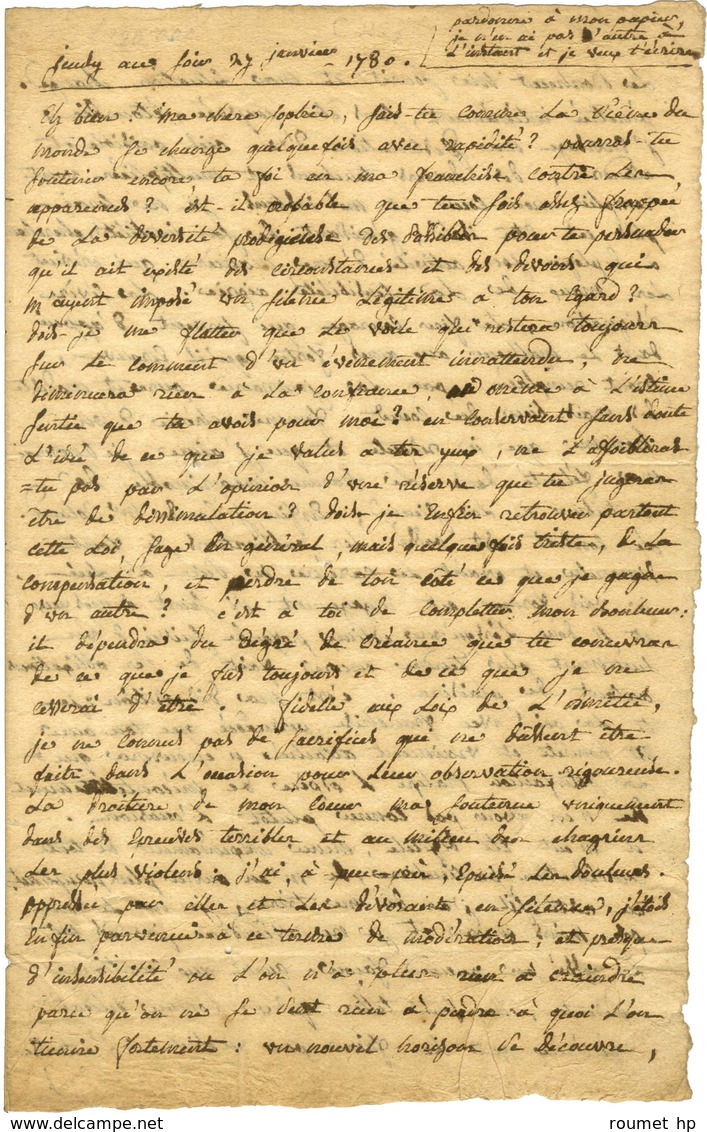 pardonne à mon papier,
je n'en ai pas d'autre à
L'instant et je veux t'écrire
jeudy au soir 27 janvier 1780.
Eh bien! ma chere sophie, sais-tu comme La scène du
monde se change quelquefois avec rapidité? pourras-tu
soutenir encore ta foi en ma franchise contre Les
apparences? est-il probable que tu sois assez frappée
de La diversité prodigieuse des possibles pour te persuader
qu'il ait existé des circonstances et des devoirs qui
m'ayent imposé un silence Légitime à ton égard?
dois-je me flatter que Le voile qui restera toujours
sur Le comment d'un évènement innattendu, ne
diminuera rien à La confiance, à L'estime
sentie que tu avois pour moi? en conservant sans doute
L'idée de ce que je valus a tes yeux, ne L'affoibliras
=tu pas par L'opinion d'une réserve que tu jugeras
être de dissimulation? dois-je enfin retrouver partout
cette Loi sage en général, mais quelque fois triste, de La
compensation, et perdre de ton côté ce que je gagne
d'un autre? c'est à toi de completter mon bonheur:
il dépendra du dégré de créance que tu conserveras
de ce que je fus toujours et de ce que je ne
cesserai d'être. fidelle aux Loix de L'amitié,
je ne connus pas de sacrifices qui ne dussent être
faits dans L'occasion pour Leur observation rigoureuse.
La droiture de mon coeur m'a soutenue uniquement
dans des épreuves terribles et au milieu des chagrins
Les plus violens; j'ai, à peu près, épuisé Les douleurs.
oppressée par elles, et Les dévorant, en silence, j'étois
Enfin parvenue à ce terme de modération, et presque
d'insensibilité ou L'on n'a plus rien à craindre
parce qu'on ne se sent rien à perdre à quoi L'on
tienne fortement: un nouvel horizon se découvre,
roumet hp